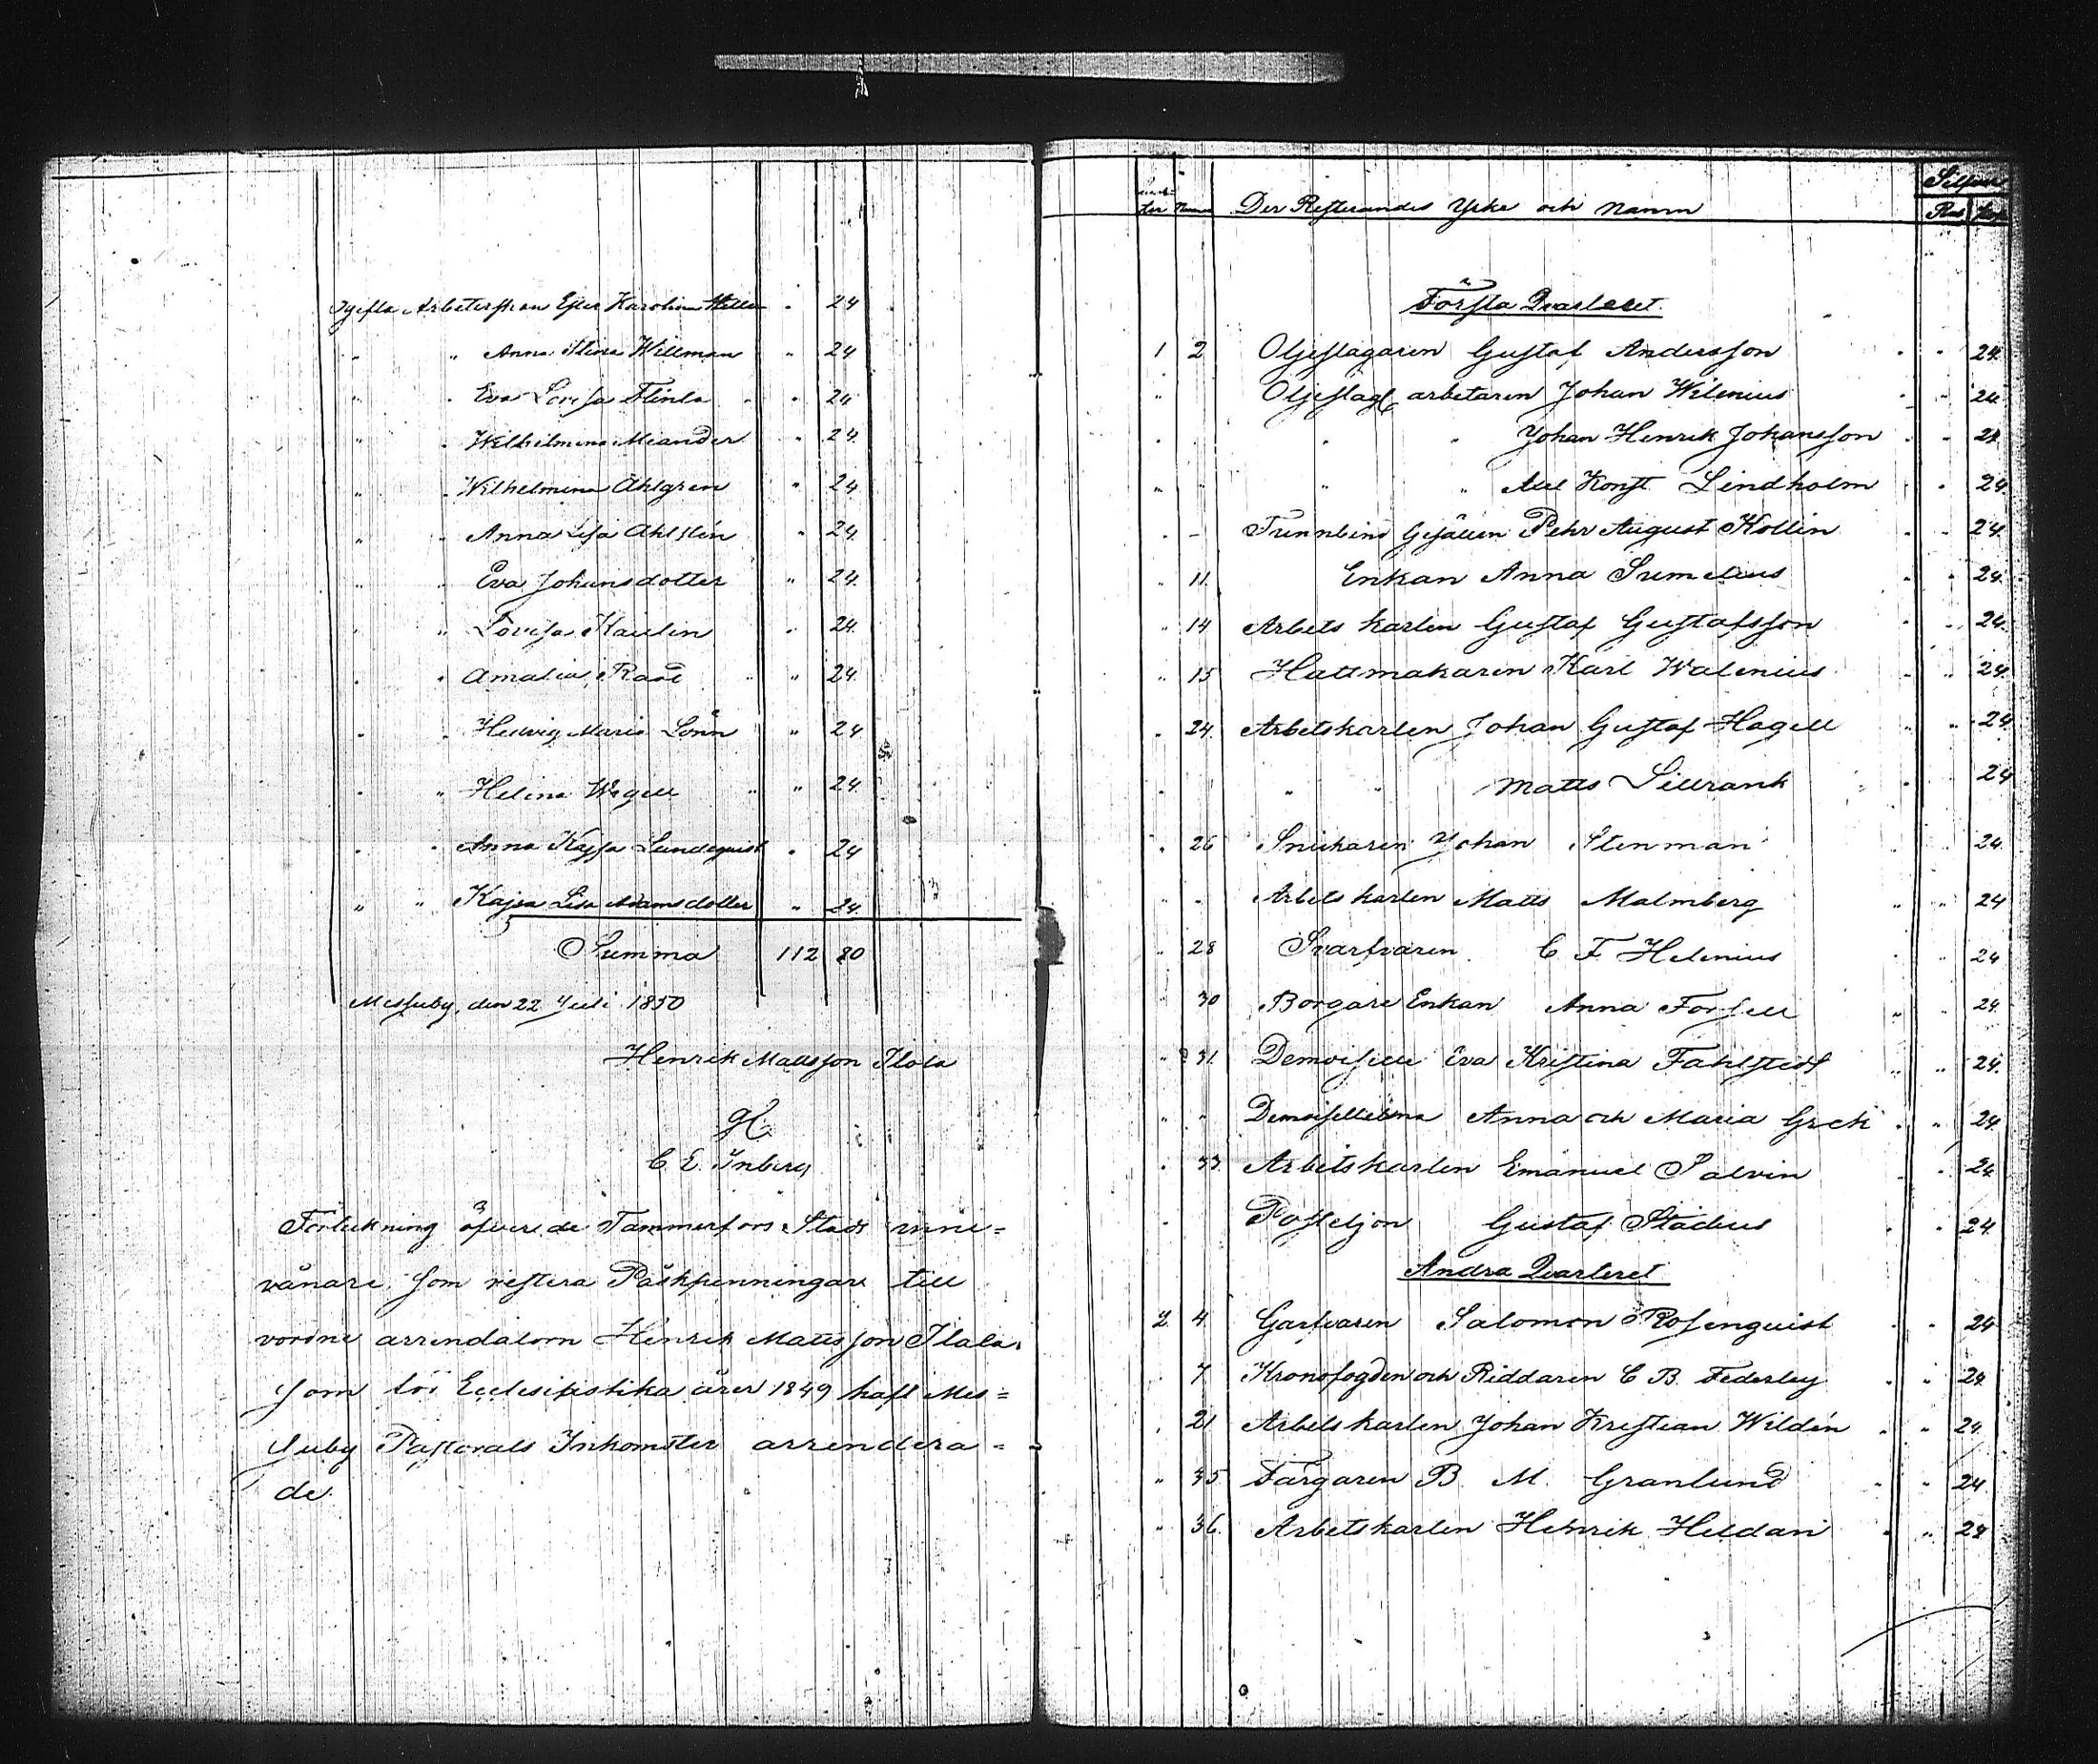 Ogifta Arbeterskan Ester Karolina Helle " 24
" " Anna Stina Willman " 24
" " Eva Lovisa Flinta " 24
" " Wilhelmina Meander " 24
" " Wilhelmina Åhlgren " 24
" " Anna Lisa Ahlstén " 24
" " Eva Johansdotter " 24
" " Lovisa Kaulin " 24
" " Amalia Rask " 24
" " Hedvig Maria Lönn " 24
" " Helena Wagell " 24
" " Anna Kajsa Lundeqvist " 24
" " Kajsa Lisa Adamsdotter " 24
Summa 112 80
Messuby, den 22 Juli 1850
Henrik Mattsson Ilola
gℓ.
C E. Inberg
Förtekning öfver de Tammerfors Stads inne=
vånare, som restera Påskpenningar till
vordne arrendatorn Henrik Mattsson Ilola,
som för Ecclesiastika året 1849 haft Mes=
suby Pastorats Inkomster arrendera=
de.
Quarter Numer Der Resterandes Yrke och Namn Silfver
Rub. Kop.
Första Quarteret.
1 2 Oljeslagaren Gustaf Andersson " 24.
" Oljeslag. arbetaren Johan Wilenius " 24
" " " Johan Henrik Johansson " 24.
" " " " Axel Konst. Lindholm " 24.
" - Tunnbind Gesällen Pehr August Kollin " 24.
" 11. Enkan Anna Sumelius " 24.
" 14 Arbets karlen Gustaf Gustafsson " 24.
" 15 Hattmakaren Karl Walenius " 24.
" 24. Arbetskarlen Johan Gustaf Hagell " 24
" " " Matts Sillrank " 24
" 26 Snickaren Johan Stenman " 24.
" " Arbets karlen Matts Malmberg " 24
" 28 Svarfvaren C F Helenius " 24
" 30 Borgare Enkan Anna Forsell " 24.
" 31. Demoiselle Eva Kristina Fahlstedt " 24.
" " Demoisellerna Anna och Maria Grek " 24.
" 33. Arbetskarlen Emanuel Palvin " 24
" Postiljon Gustaf Stadius " 24.
Andra Quarteret
2 4. Garfvaren Salomon Rosenquist " 24
" 7 Kronofogden och Riddaren C B. Federley " 24.
" 21 Arbets karlen Johan Kristian Wildén " 24.
" 35 Färgaren B. M. Granlund " 24.
" 36. Arbetskarlen Henrik Heldan " 24